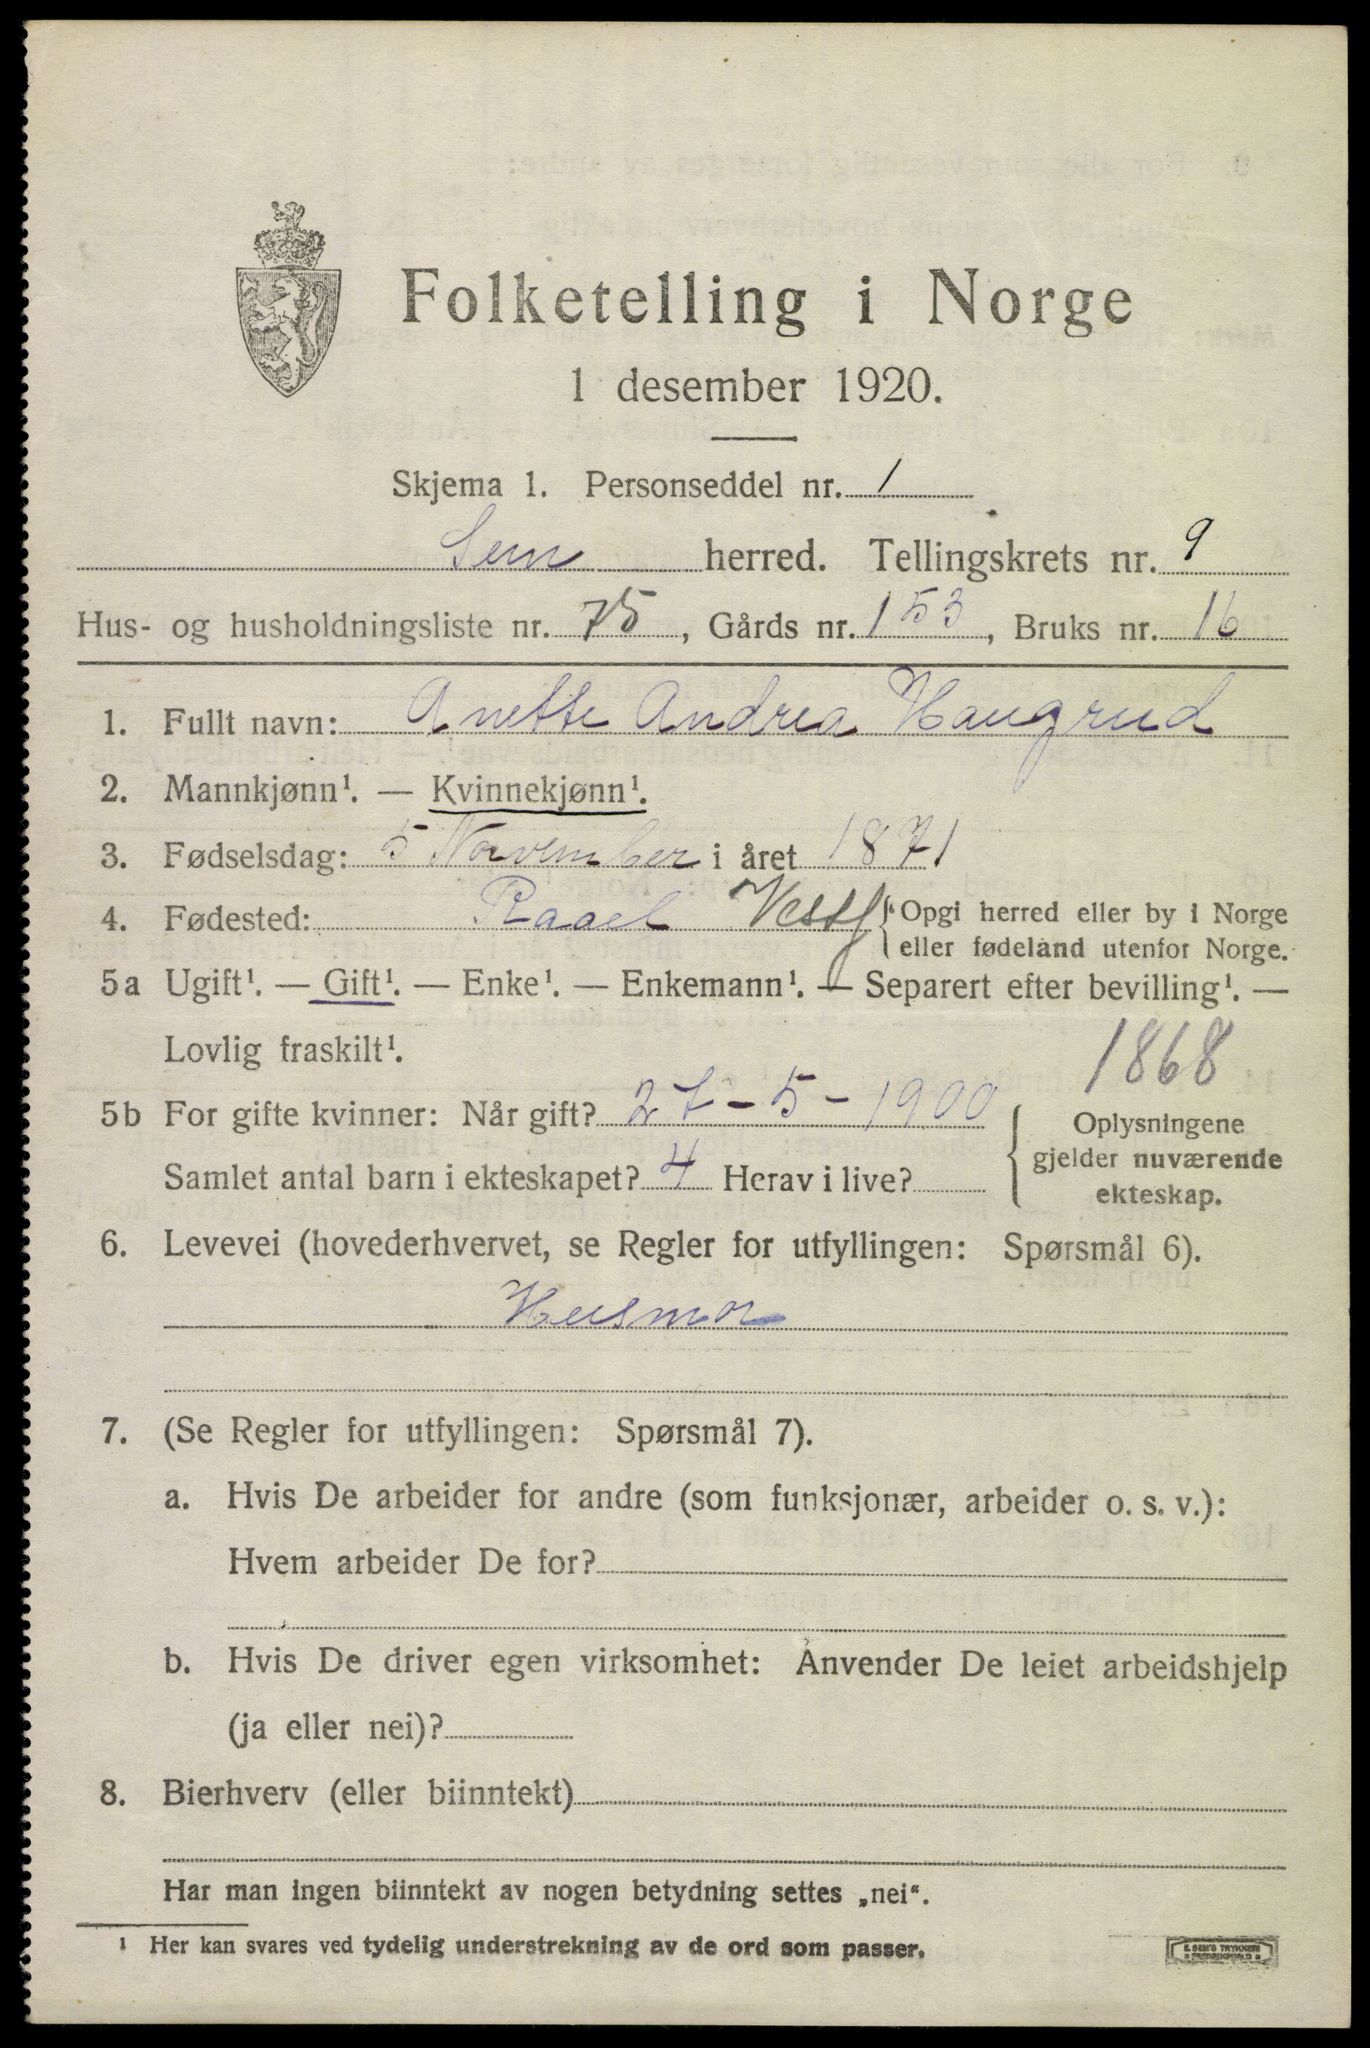 Folketelling i Norge
1 desember 1920.
Skjema 1. Personseddel nr. 1
Sem herred. Tellingskrets nr. 9
Hus- og husholdningsliste nr. 75, Gårds nr. 153, Bruks nr. 16
1. Fullt navn: Anette Andrea Haugrud
2. Mannkjønn¹. — Kvinnekjønn¹.
3. Fødselsdag: 5 November i året 1871
4. Fødested: Raael Vestf { Opgi herred eller by i Norge
eller fødeland utenfor Norge.
5a Ugift¹. — Gift¹. — Enke¹. — Enkemann¹. — Separert efter bevilling¹. —
Lovlig fraskilt¹.
1868
5b For gifte kvinner: Når gift? 27-5-1900
Samlet antal barn i ekteskapet? 4 Herav i live?
Oplysningene
gjelder nuværende
ekteskap.
6. Levevei (hovederhvervet, se Regler for utfyllingen: Spørsmål 6).
Husmor
7. (Se Regler for utfyllingen: Spørsmål 7).
a. Hvis De arbeider for andre (som funksjonær, arbeider o. s. v.):
Hvem arbeider De for?
b. Hvis De driver egen virksomhet: Anvender De leiet arbeidshjelp
(ja eller nei)?
8. Bierhverv (eller biinntekt)
Har man ingen biinntekt av nogen betydning settes „nei“.
¹ Her kan svares ved tydelig understrekning av de ord som passer.